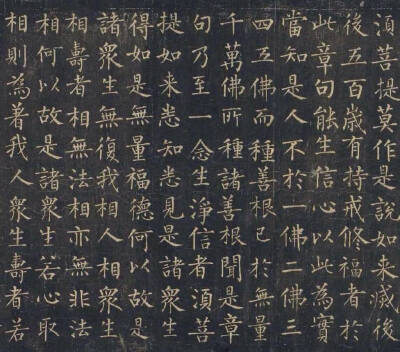 湏菩提莫作是說如来滅後
後五百歲有持戒修福者於
此章句能生信心以此為實
當知是人不於一佛二佛三
四五佛而種善根已於無量
千萬佛所種諸善根聞是章
句乃至一念生淨信者湏菩
提如来悉知悉見是諸衆生
得如是無量福德何以故是
諸衆生無復我相人相衆生
相壽者相無法相亦無非法
相何以故是諸衆生若心取
相則為著我人衆生壽者若